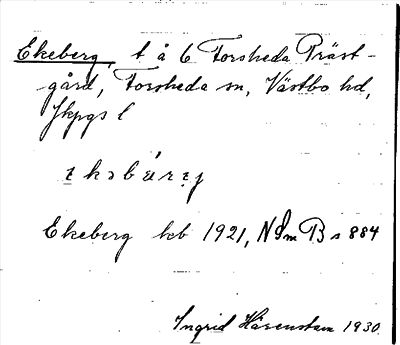 Ekeberg, t å 6 Forsheda Präst-
gård, Forsheda sn, Västbo hd,
Jkpgs l
Ekeberg kb 1921, NSm B s 884
Ingrid Härenstam 1930